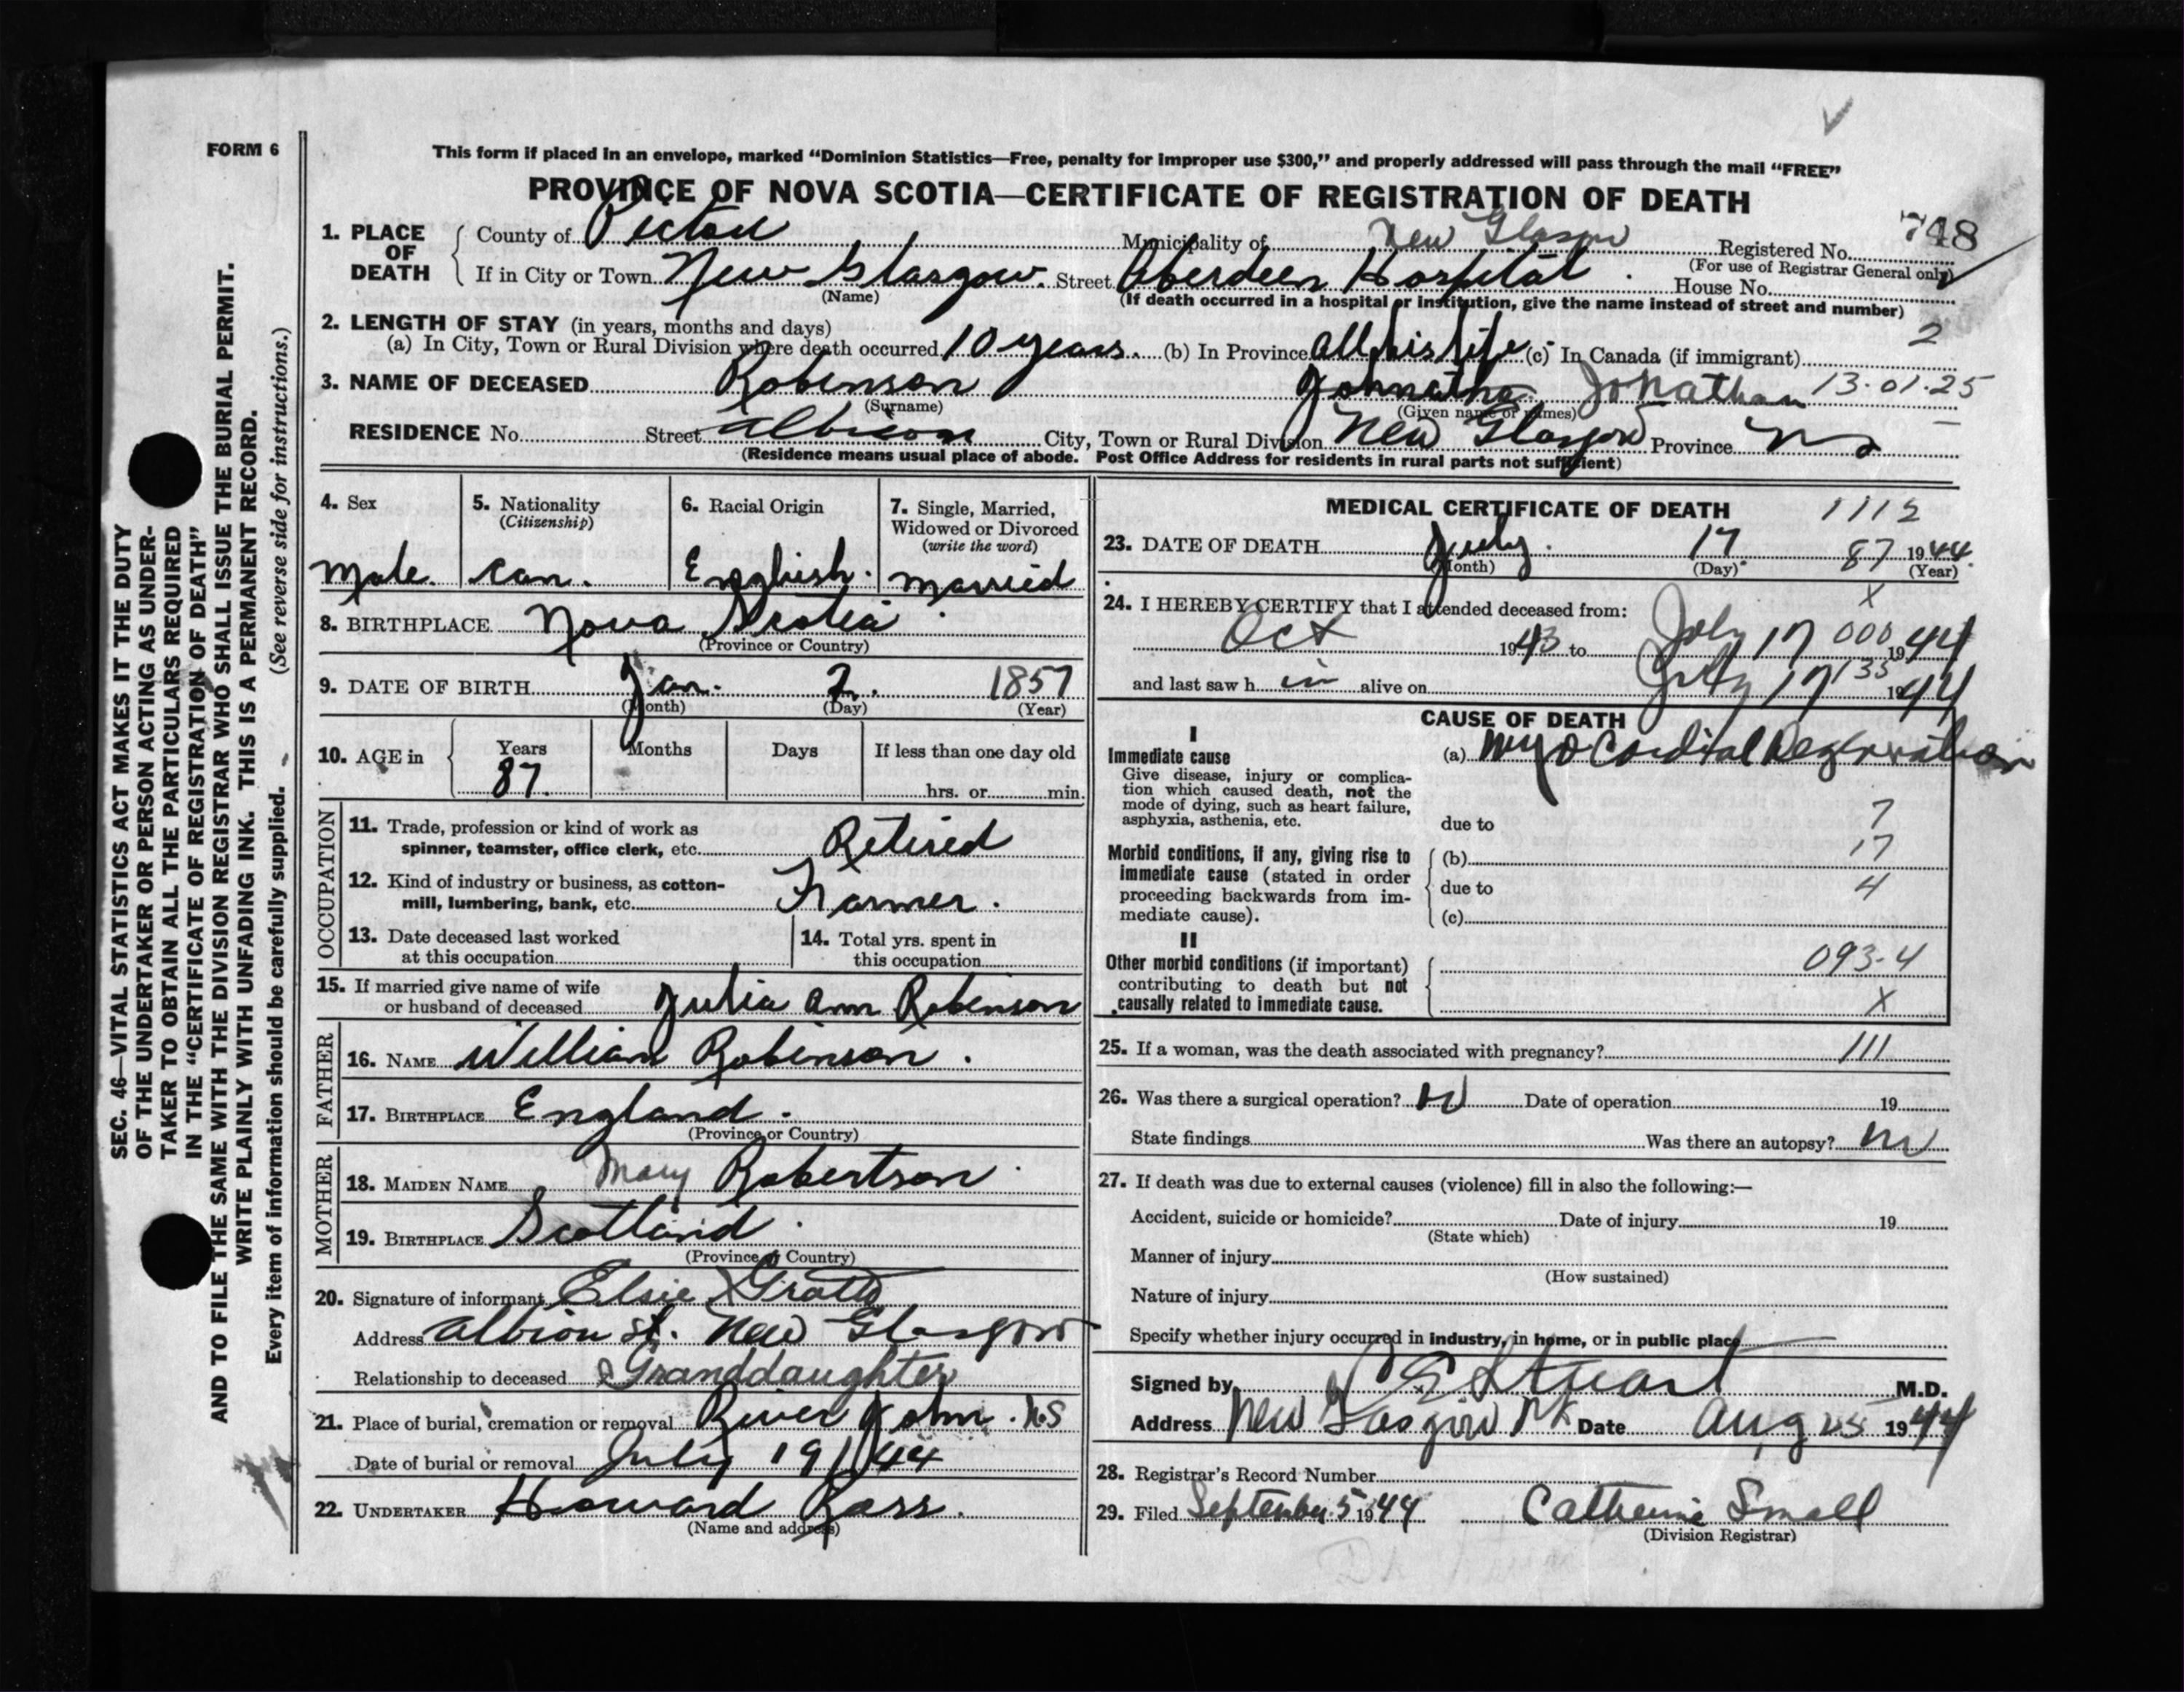 FORM 6
This form if placed in an envelope, marked "Dominion Statistics—Free, penalty for improper use $300," and properly addressed will pass through the mail "FREE"
PROVINCE OF NOVA SCOTIA—CERTIFICATE OF REGISTRATION OF DEATH
748
1. PLACE OF DEATH County of Pictou Municipality of New Glasgow Registered No.
(For use of Registrar General only)
If in City or Town New Glasgow. Street Aberdeen Hospital. House No.
(Name) (If death occurred in a hospital or institution, give the name instead of street and number)
2. LENGTH OF STAY (in years, months and days) 2
(a) In City, Town or Rural Division where death occurred 10 years. (b) In Province all his life (c) In Canada (if immigrant)
3. NAME OF DECEASED Robinson Jonathan 13-01-25
(Surname) (Given name or names)
RESIDENCE No. Street Albion City, Town or Rural Division New Glasgow Province NS
(Residence means usual place of abode. Post Office Address for residents in rural parts not sufficient)
4. Sex 5. Nationality (Citizenship) 6. Racial Origin 7. Single, Married, Widowed or Divorced (write the word)
Male. Can. English. Married
8. BIRTHPLACE Nova Scotia
(Province or Country)
9. DATE OF BIRTH Jan. 2. 1857
(Month) (Day) (Year)
10. AGE in Years Months Days If less than one day old
87. hrs. or min.
OCCUPATION
11. Trade, profession or kind of work as spinner, teamster, office clerk, etc. Retired
12. Kind of industry or business, as cotton-mill, lumbering, bank, etc. Farmer.
13. Date deceased last worked at this occupation
14. Total yrs. spent in this occupation
15. If married give name of wife or husband of deceased Julia Ann Robinson
FATHER
16. NAME William Robinson.
17. BIRTHPLACE England.
(Province or Country)
MOTHER
18. MAIDEN NAME Mary Robertson
19. BIRTHPLACE Scotland
(Province or Country)
20. Signature of informant Elsie
Address Albion St. New Glasgow
Relationship to deceased Granddaughter
21. Place of burial, cremation or removal River John. N.S
Date of burial or removal July 19/44
22. UNDERTAKER Howard Ross.
(Name and address)
MEDICAL CERTIFICATE OF DEATH 1112
23. DATE OF DEATH July. 17 87 1944
(Month) (Day) (Year)
24. I HEREBY CERTIFY that I attended deceased from: X
Oct 1943 to July 17 000 1944
and last saw h im alive on July 17 133 1944
CAUSE OF DEATH
I
Immediate cause
(a) Myocardial Degeneration
Give disease, injury or complication which caused death, not the mode of dying, such as heart failure, asphyxia, asthenia, etc.
due to 7
Morbid conditions, if any, giving rise to immediate cause (stated in order proceeding backwards from immediate cause).
(b) 17
due to 4
(c)
II
Other morbid conditions (if important) contributing to death but not causally related to immediate cause.
093-4
X
25. If a woman, was the death associated with pregnancy? 111
26. Was there a surgical operation? No Date of operation 19
State findings Was there an autopsy? no
27. If death was due to external causes (violence) fill in also the following:—
Accident, suicide or homicide? Date of injury 19
(State which)
Manner of injury
(How sustained)
Nature of injury
Specify whether injury occurred in industry, in home, or in public place
Signed by Stuart M.D.
Address New Glasgow Date Aug 25 1944
28. Registrar's Record Number
29. Filed September 5 1944 Catherine Small
(Division Registrar)
SEC. 46—VITAL STATISTICS ACT MAKES IT THE DUTY
OF THE UNDERTAKER OR PERSON ACTING AS UNDER-
TAKER TO OBTAIN ALL THE PARTICULARS REQUIRED
IN THE "CERTIFICATE OF REGISTRATION OF DEATH"
AND TO FILE THE SAME WITH THE DIVISION REGISTRAR WHO SHALL ISSUE THE BURIAL PERMIT.
WRITE PLAINLY WITH UNFADING INK. THIS IS A PERMANENT RECORD.
Every item of information should be carefully supplied. (See reverse side for instructions.)